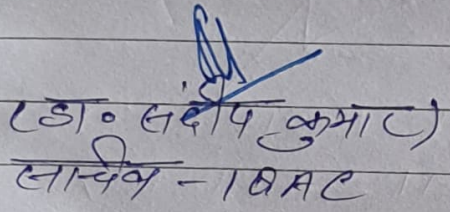 (डा॰ संदीप कुमार)
सचिव - IQAC